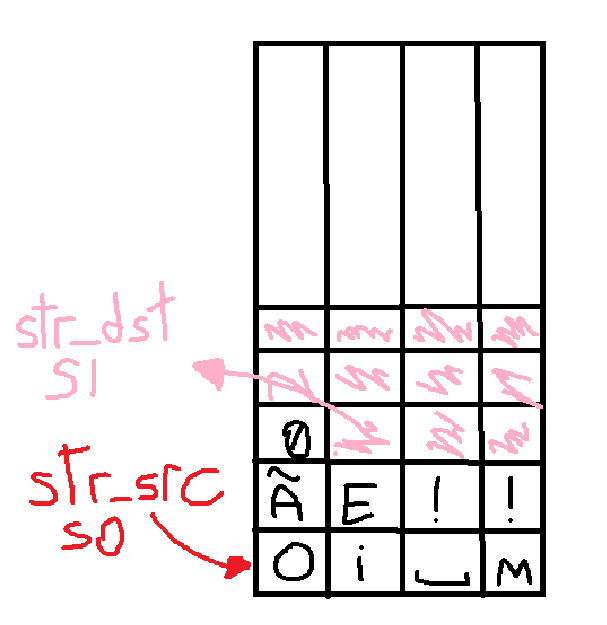 str_dst
S1
0
str_src
s0
Ã E ! !
O i ⎵ M